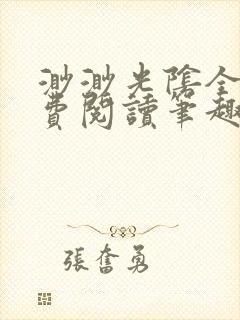 渺渺光陰全
費閱讀筆趣
張奮勇